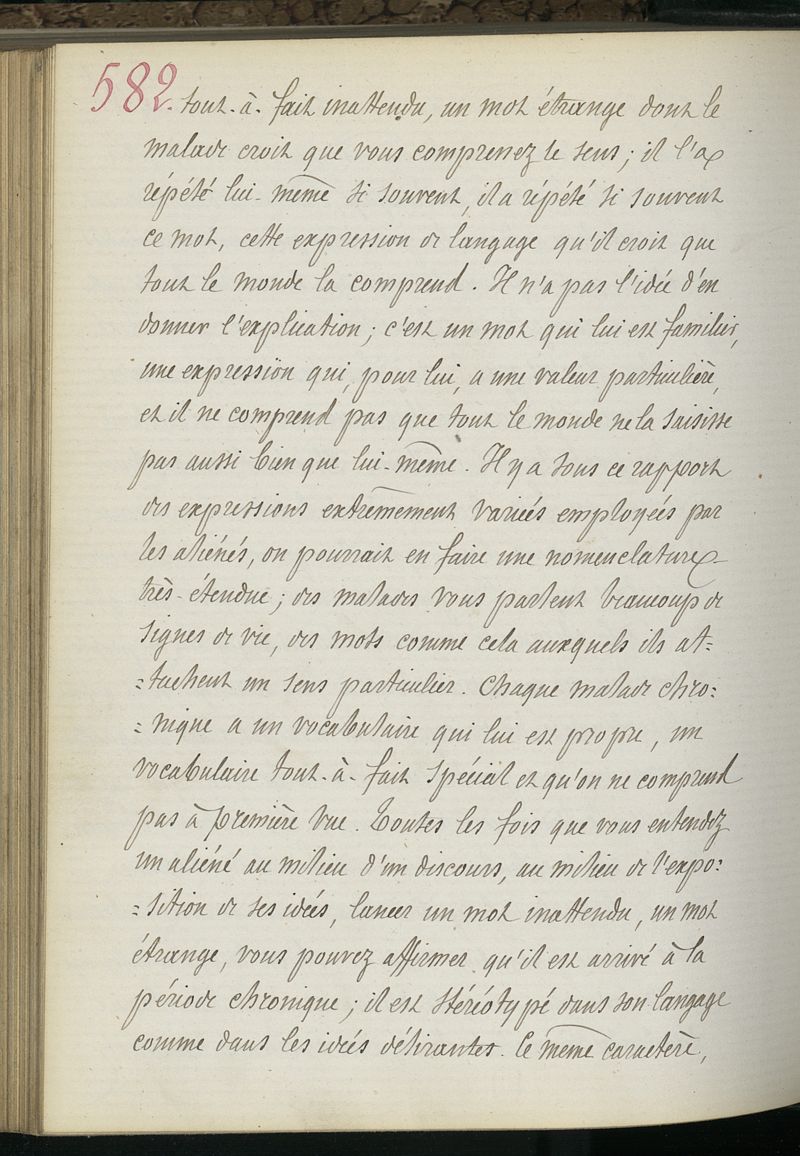 582.
tout-à-fait inattendu, un mot étrange dont le
malade croit que vous comprenez le sens ; il l'a
répété lui-même si souvent, il a répété si souvent
ce mot, cette expression de langage qu'il croit que
tout le monde la comprend. Il n'a pas l'idée d'en
donner l'explication ; c'est un mot qui lui est familier,
une expression qui, pour lui, a une valeur particulière,
et il ne comprend pas que tout le monde ne la saisisse
pas aussi bien que lui-même. Il y a sous ce rapport
des expressions extrêmement variées employées par
les aliénés, on pourrait en faire une nomenclature
très-étendue ; des malades vous parlent beaucoup de
signes de vie, des mots comme cela auxquels ils at=
=tachent un sens particulier. Chaque malade chro=
=nique a un vocabulaire qui lui est propre, un
vocabulaire tout-à-fait spécial et qu'on ne comprend
pas à première vue. Toutes les fois que vous entendez
un aliéné au milieu d'un discours, au milieu de l'expo=
=sition de ses idées, lancer un mot inattendu, un mot
étrange, vous pouvez affirmer qu'il est arrivé à la
période chronique ; il est stéréotypé dans son langage
comme dans les idées délirantes. Ce même caractère,